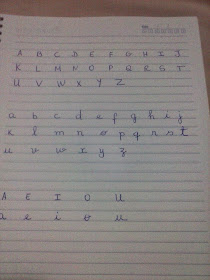 A B C D E F G H I J
K L M N O P Q R S T
U V W X Y Z
a b c d e f g h i j
l m n o p q r s t
u v w x y z
A E I O U
a e i o u